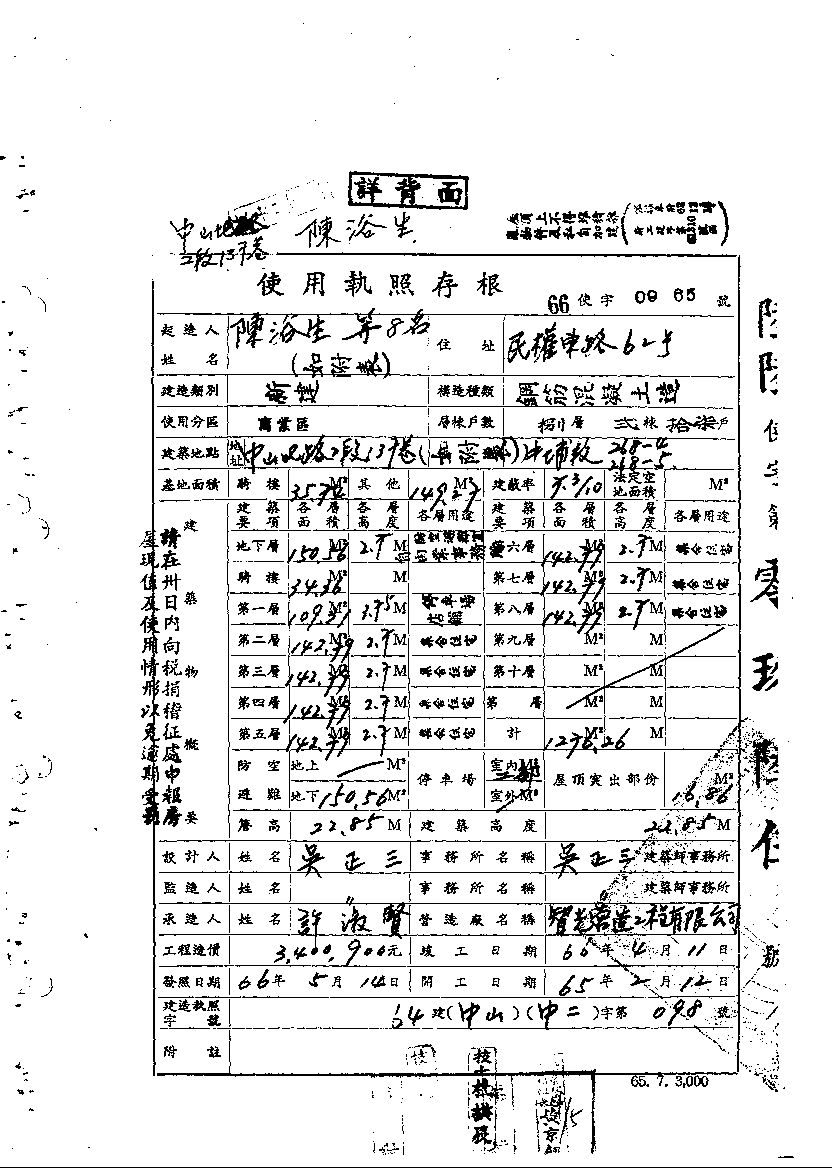 詳背面
陳浴生
中山北路
二段137巷
使用執照存根
66使字0965號
起造人姓名 陳浴生等8名(如附表) 住址 民權東路62號
建造類別 新建 構造種類 鋼筋混凝土造
使用分區 商業區 層棟戶數 捌層 弍棟 拾柒戶
建築地點 地址 中山北路2段137巷 268-4 268-5
基地面積 騎樓 35.74M² 其他 149.27M² 建蔽率 法定空地面積 M²
建築要項 各層面積 各層高度 各層用途 建築要項 各層面積 各層高度 各層用途
地下層 150.56M² 2.7M 第六層 142.99M² 2.7M 集合住宅
騎樓 34.36M² M 第七層 142.99M² 2.7M 集合住宅
第一層 109.31M² 3.75M 第八層 142.99M² 2.7M 集合住宅
第二層 142.99M² 2.7M 集合住宅 第九層 M² M
第三層 142.99M² 2.7M 集合住宅 第十層 M² M
第四層 142.99M² 2.7M 集合住宅 第 層 M² M
第五層 142.99M² 2.7M 集合住宅 計 M² M
防空避難 地上 M² 停車場 室內M² 屋頂突出部份 16.86M²
地下 150.56M² 室外M²
簷高 22.85M 建築高度 22.85M
設計人 姓名 吳正三 事務所名稱 吳正三建築師事務所
監造人 姓名 〃 事務所名稱 建築師事務所
承造人 姓名 許淑賢 營造廠名稱 營造工程有限公司
工程造價 3,400,900元 竣工日期 66年4月11日
發照日期 66年5月14日 開工日期 65年2月12日
建造執照字號 64建(中山)(中二)字第098號
附註
建築物概要
請在卅日內向稅捐稽征處申報房
屋現值及使用情形以免逾期受罰
65.7.3,000